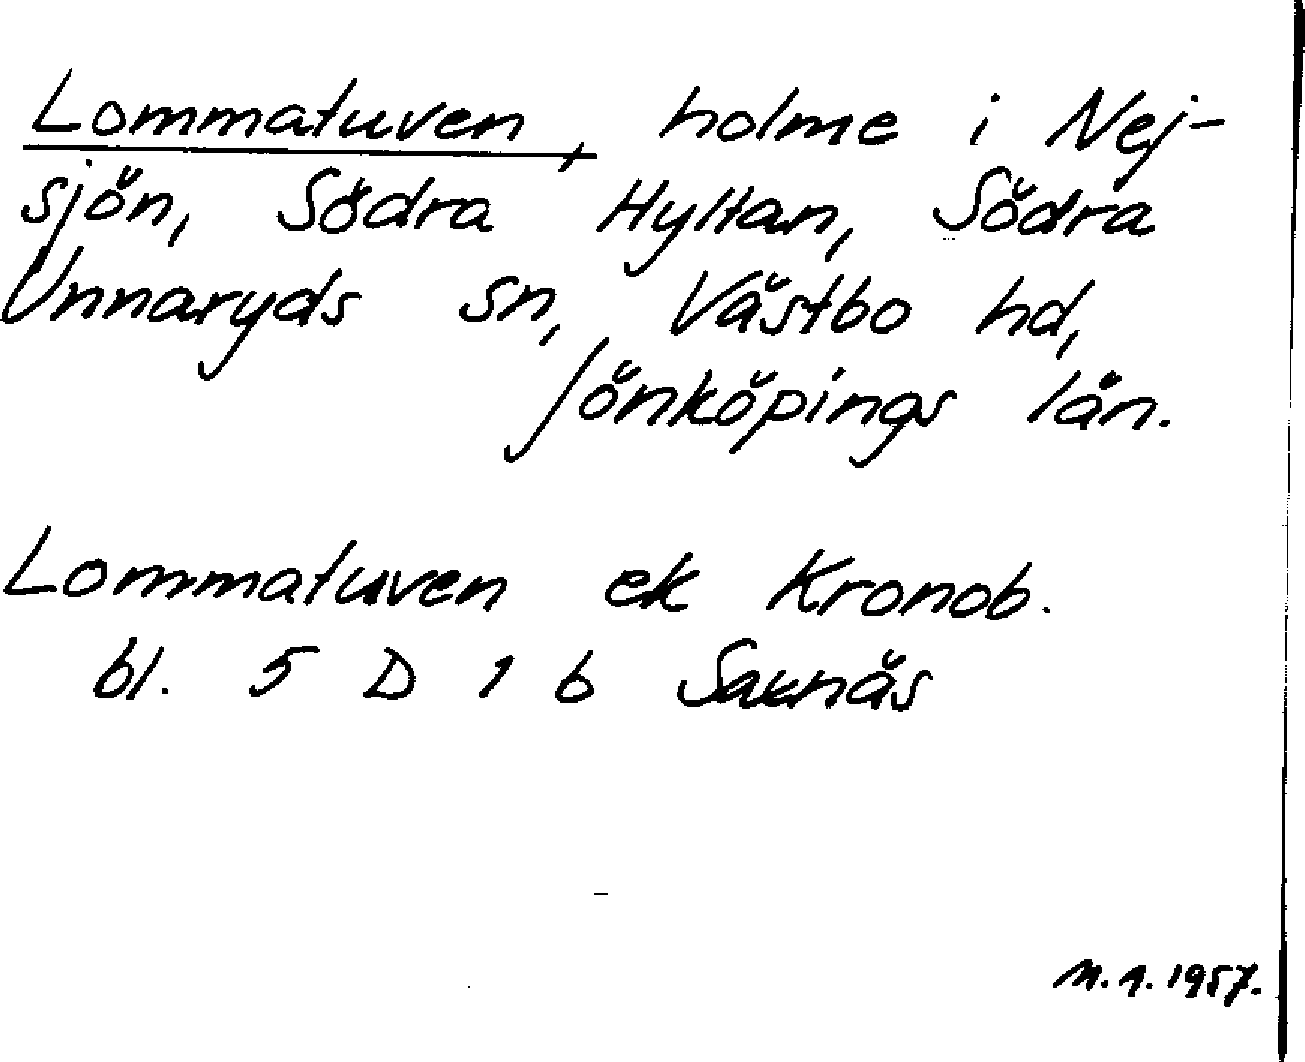 Lommatuven, holme i Nej-
sjön, Södra Hyltan, Södra
Unnaryds sn, Västbo hd,
Jönköpings län.
Lommatuven ek Kronob.
bl. 5 D 1 b Saxnäs
M. A. 1957.